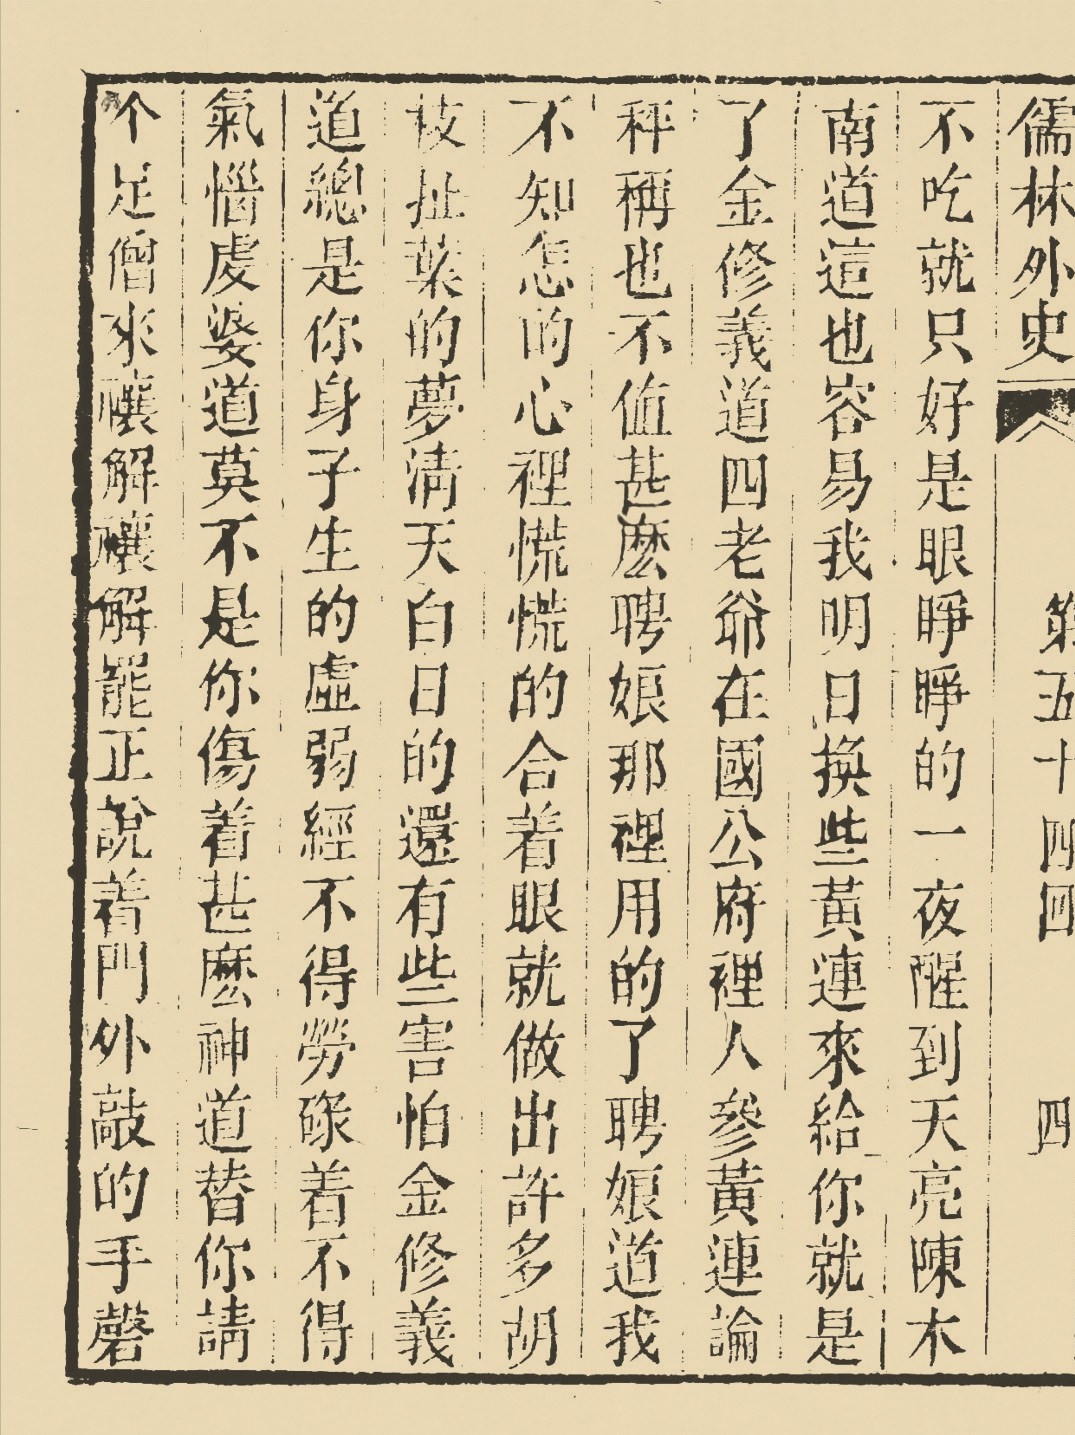 儒林外史 第五十四囘 四
不吃就只好是眼睜睜的一夜醒到天亮陳木
南道這也容易我明日換些黃連來給你就是
了金修義道四老爺在國公府裡人參黃連論
秤稱也不值甚麽聘娘那裡用的了聘娘道我
不知怎的心裡慌慌的合着眼就做出許多胡
枝扯葉的夢清天白日的還有些害怕金修義
道總是你身子生的虛弱經不得勞碌着不得
氣惱虔婆道莫不是你傷着甚麽神道替你請
个尼僧來禳解禳解罷正說着門外敲的手磬